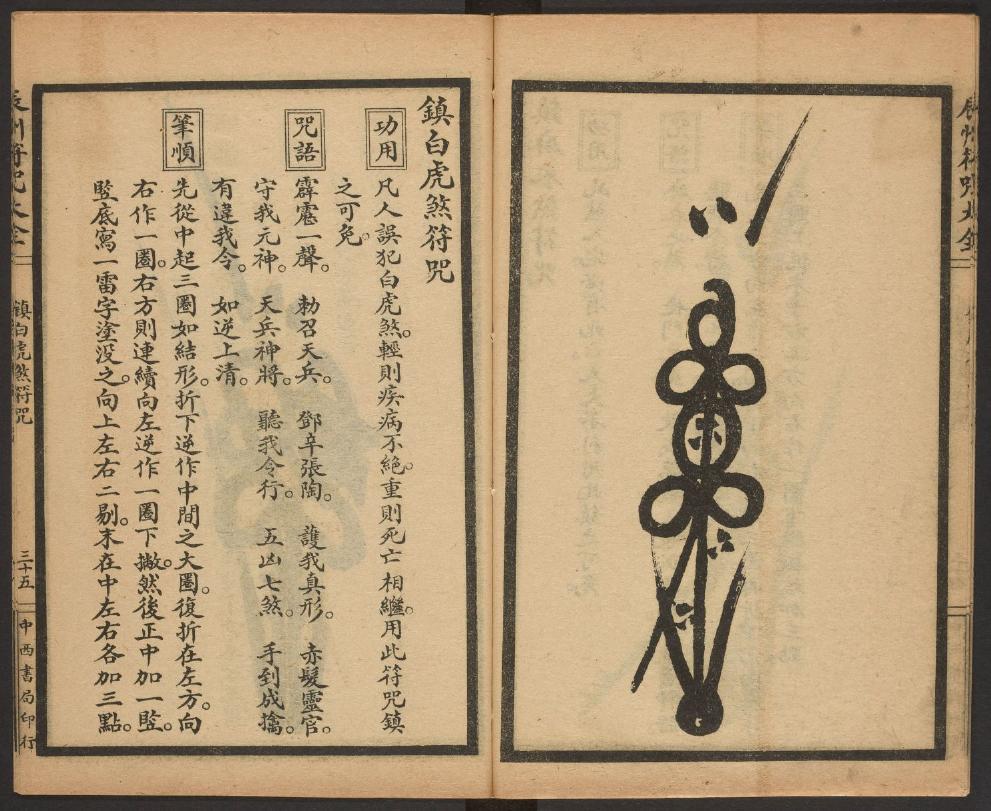 鎮白虎煞符咒
功用
凡人誤犯白虎煞。輕則疾病不絕。重則死亡相繼。用此符咒鎮
之可免。
咒語
霹靂一聲。　勅召天兵。　鄧辛張陶。　護我真形。　赤髮靈官。
守我元神。　天兵神將。　聽我令行。　五凶七煞。　手到成擒。
有違我令。　如逆上清。
筆順
先從中起三圈如結形。折下逆作中間之大圈。復折在左方。向
右作一圈。右方則連續向左逆作一圈下撇。然後正中加一豎。
豎底寫一雷字塗沒之。向上左右二剔。末在中左右各加三點。
辰州符咒大全
鎮白虎煞符咒
三十五
中西書局印行
辰州符咒大全